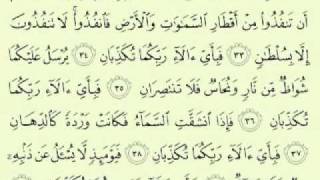 أَن تَنفُذُوا۟ مِنْ أَقْطَارِ ٱلسَّمَـٰوَٰتِ وَٱلْأَرْضِ فَٱنفُذُوا۟ ۚ لَا تَنفُذُونَ
إِلَّا بِسُلْطَـٰنٍ ٣٣ فَبِأَىِّ ءَالَآءِ رَبِّكُمَا تُكَذِّبَانِ ٣٤ يُرْسَلُ عَلَيْكُمَا
شُوَاظٌ مِّن نَّارٍ وَنُحَاسٌ فَلَا تَنتَصِرَانِ ٣٥ فَبِأَىِّ ءَالَآءِ رَبِّكُمَا
تُكَذِّبَانِ ٣٦ فَإِذَا ٱنشَقَّتِ ٱلسَّمَآءُ فَكَانَتْ وَرْدَةً كَٱلدِّهَانِ
٣٧ فَبِأَىِّ ءَالَآءِ رَبِّكُمَا تُكَذِّبَانِ ٣٨ فَيَوْمَئِذٍ لَّا يُسْـَٔلُ عَن ذَنۢبِهِۦٓ